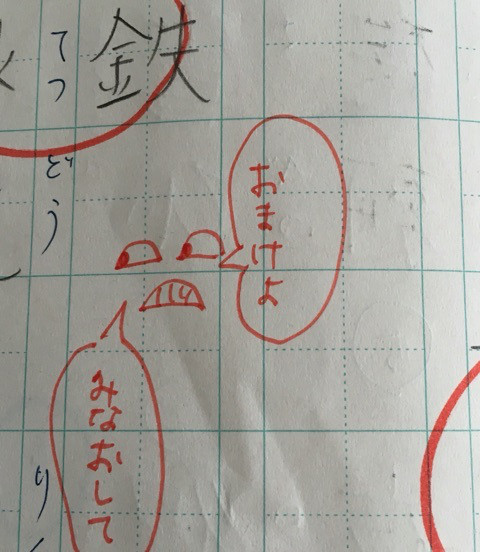 鉄
てつ
ぞう
おまけよ
みなおして
り